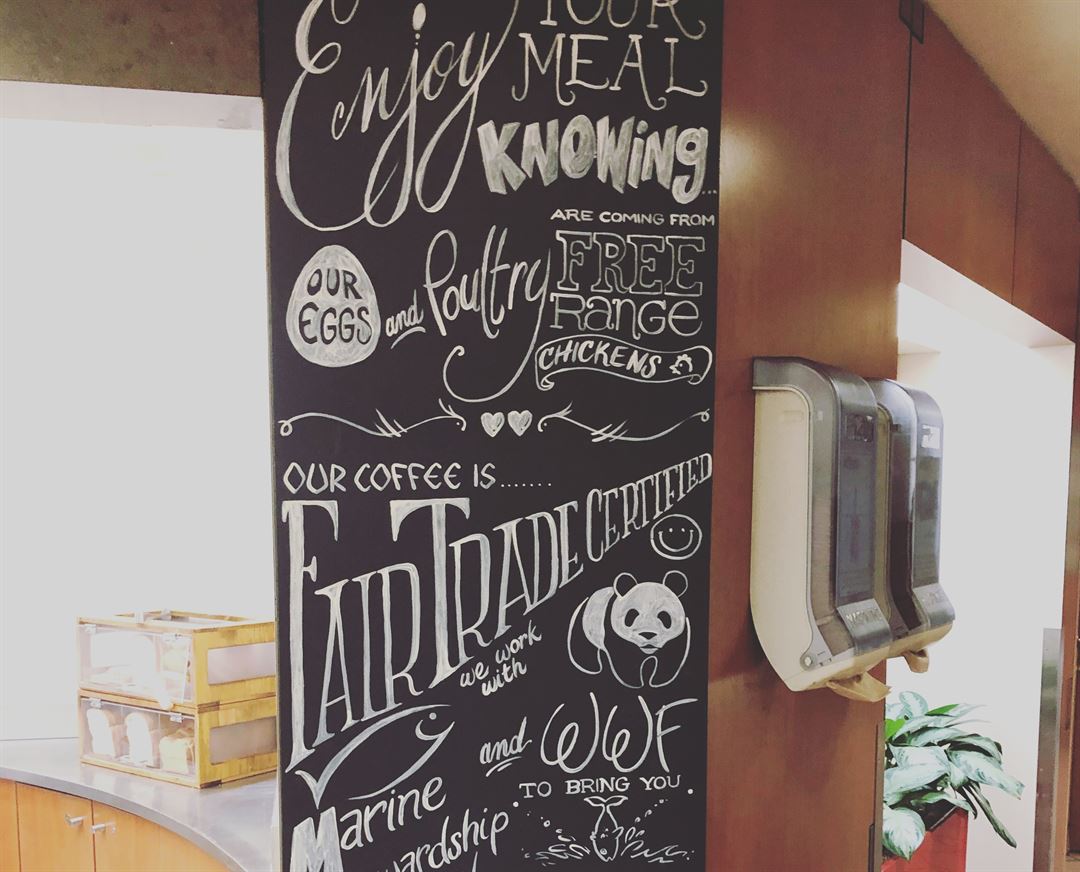 Enjoy YOUR
MEAL
KNOWiNg...
OUR
EGGS
and Poultry
ARE COMING FROM
FREE
RaNGe
CHICKENS
OUR COFFEE IS.......
FAIR TRADE CERTIFIED
we work
with
Marine
and WWF
TO BRING YOU